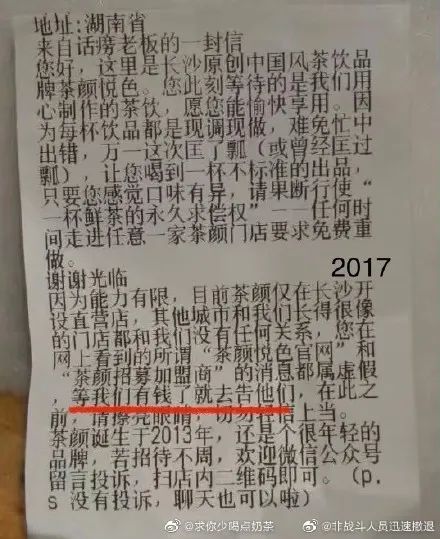 地址:湖南省
来自话痨老板的一封信
您好，这里是长沙原创中国风茶饮品
牌茶颜悦色。您此刻等待的是我们用
心制作的茶饮，愿您能愉快享用。因
为每杯饮品都是现调现做，难免忙中
出错，万一这次匡了瓢（或曾经匡过
瓢），让您喝到一杯不标准的出品，
只要您感觉口味有异，请果断行使“
一杯鲜茶的永久求偿权”——任何时
间走进任意一家茶颜门店要求免费重
做。
2017
谢谢光临
因为能力有限，目前茶颜仅在长沙开
设直营店，其他城市和我们长得很像
的门店都和我们没有任何关系，您在
网上看到的所谓“茶颜悦色官网”和
“茶颜招募加盟商”的消息都属虚假
，等我们有钱了就去告他们，在此之
前，请擦亮眼睛，切勿轻信上当。
茶颜诞生于2013年，还是个很年轻的
品牌，若招待不周，欢迎微信公众号
留言投诉，扫店内二维码即可。（p.
s 没有投诉，聊天也可以啦）
@求你少喝点奶茶
@非战斗人员迅速撤退